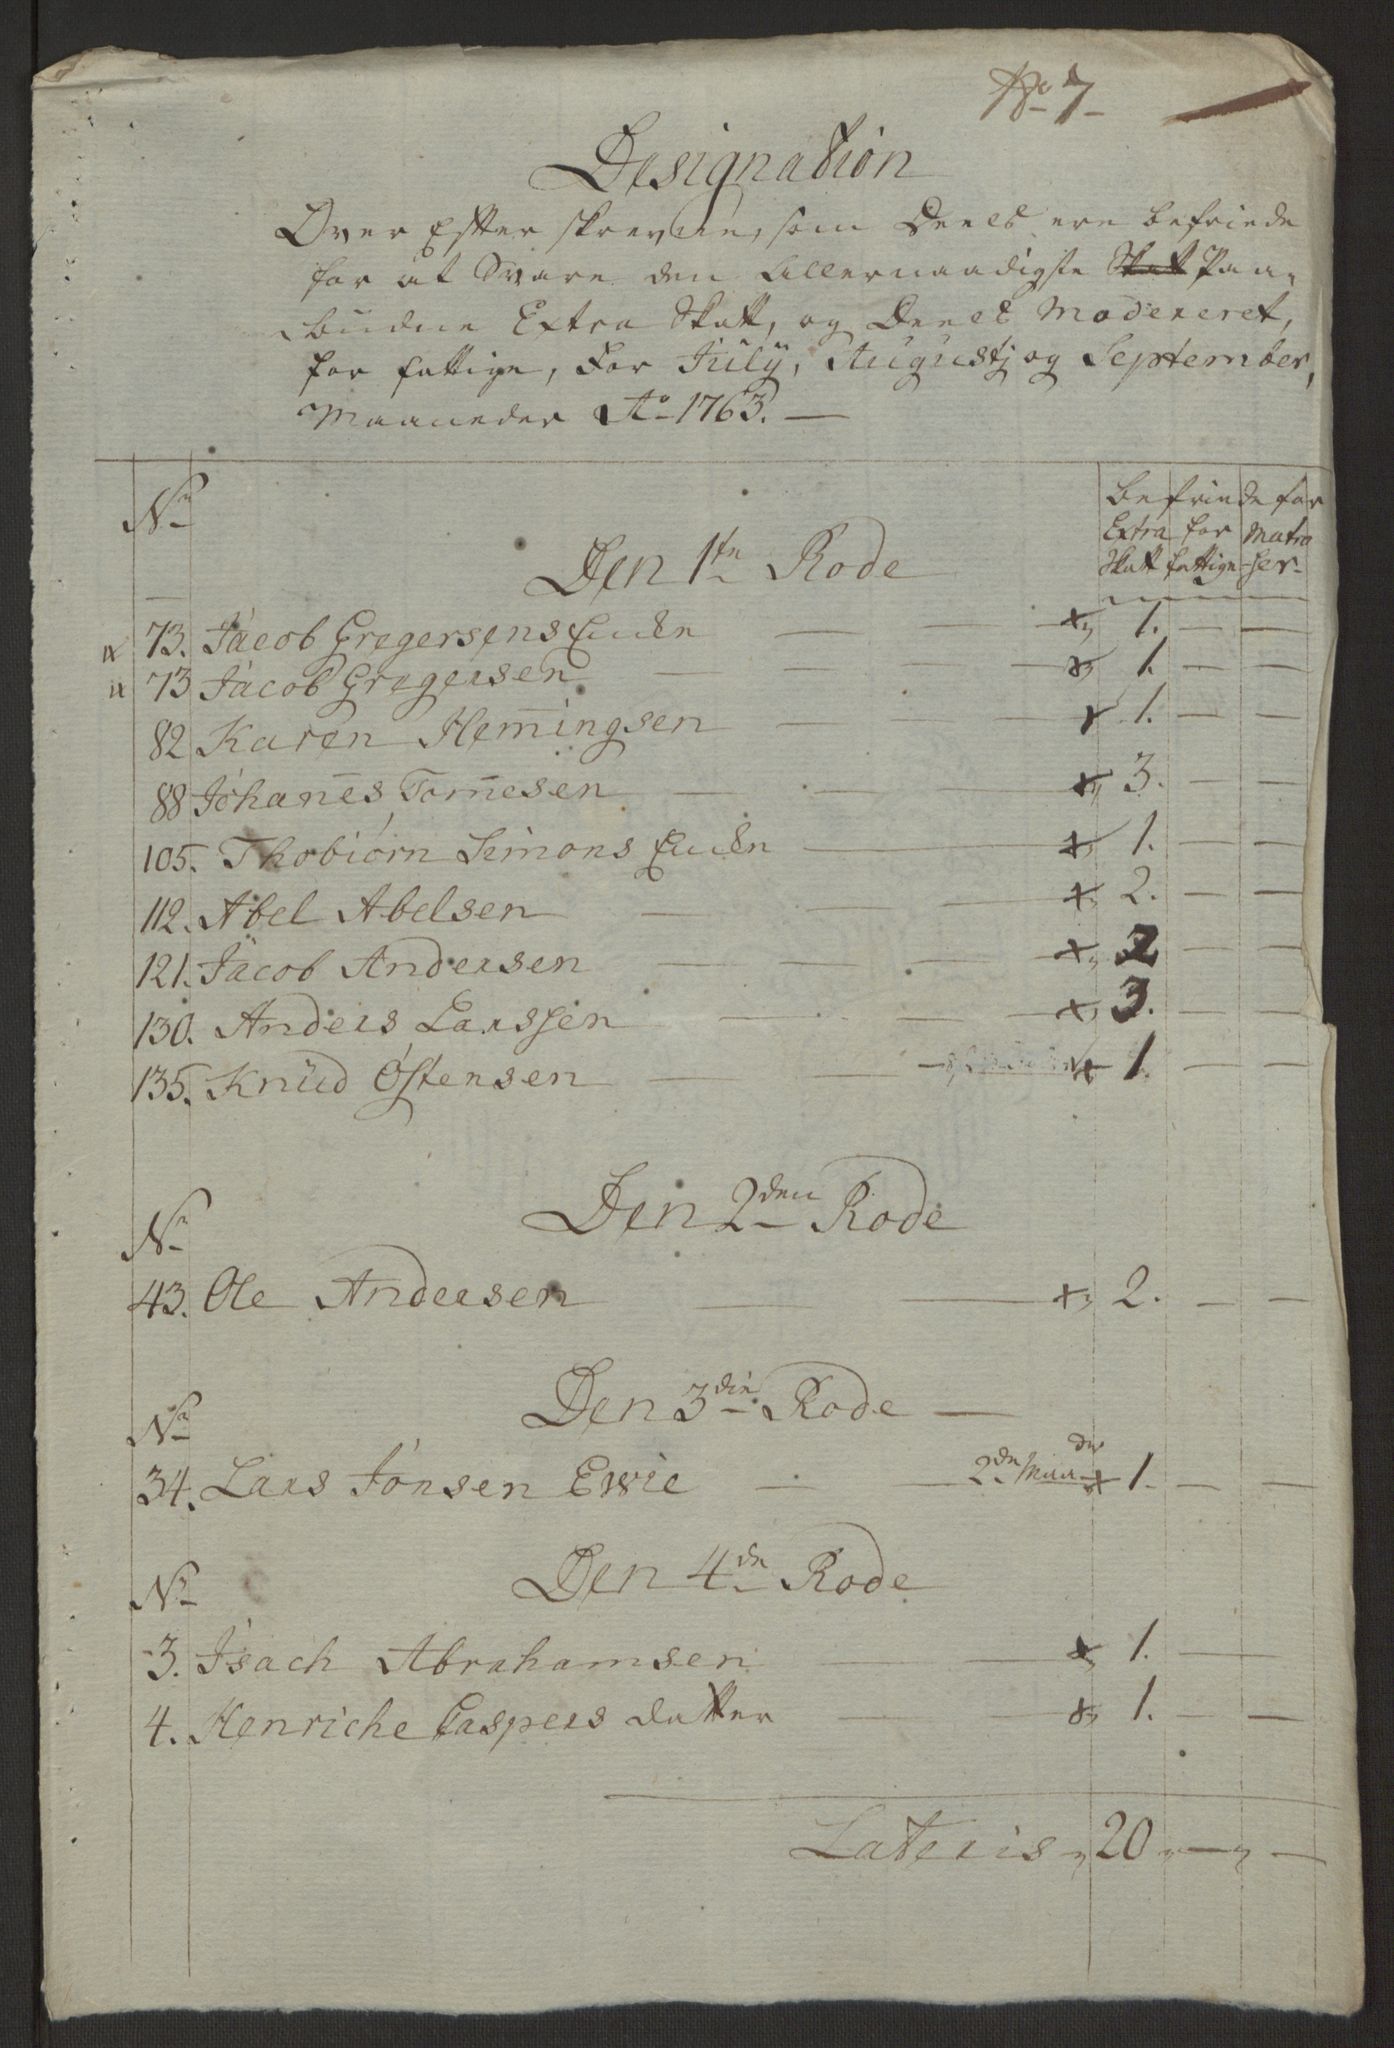 No 7
Designation
Over Efter skrevne, som Deels ere befriede
for at Svare den Allernaadigste Skatt Paa-
budne Extra Skatt, og Deels Modereret,
for fattige, For July, Augustj og September,
Maaneder Ao 1763. —
Nr
befriede for
Extra for Matro
Skatt fattige -ser-
Den 1te Rode
73. Jacob Gregersens Encke — 1. — —
73 Jacob Gregersen — 1. — —
82 Karen Hem̄ingsen — 1. — —
88 Johan̄es Tom̄esen — 3. — —
105. Thobiorn Simons Encke — 1. — —
112. Abel Abelsen — 2. — —
121. Jacob Andersen — 2 — —
130. Anders Larssen — 3. — —
135. Knud Ostensen — 1. — —
Den 2den Rode
Nr
43. Ole Andersen — 2. — —
Den 3die Rode —
Nr
34. Lars Jonsen Ewie — 2de Maader 1. — —
Den 4de Rode
Nr
3. Isach Abrahamsen — 1. — —
4. Henriche Caspers datter — 1. — —
Lateris 20 — —